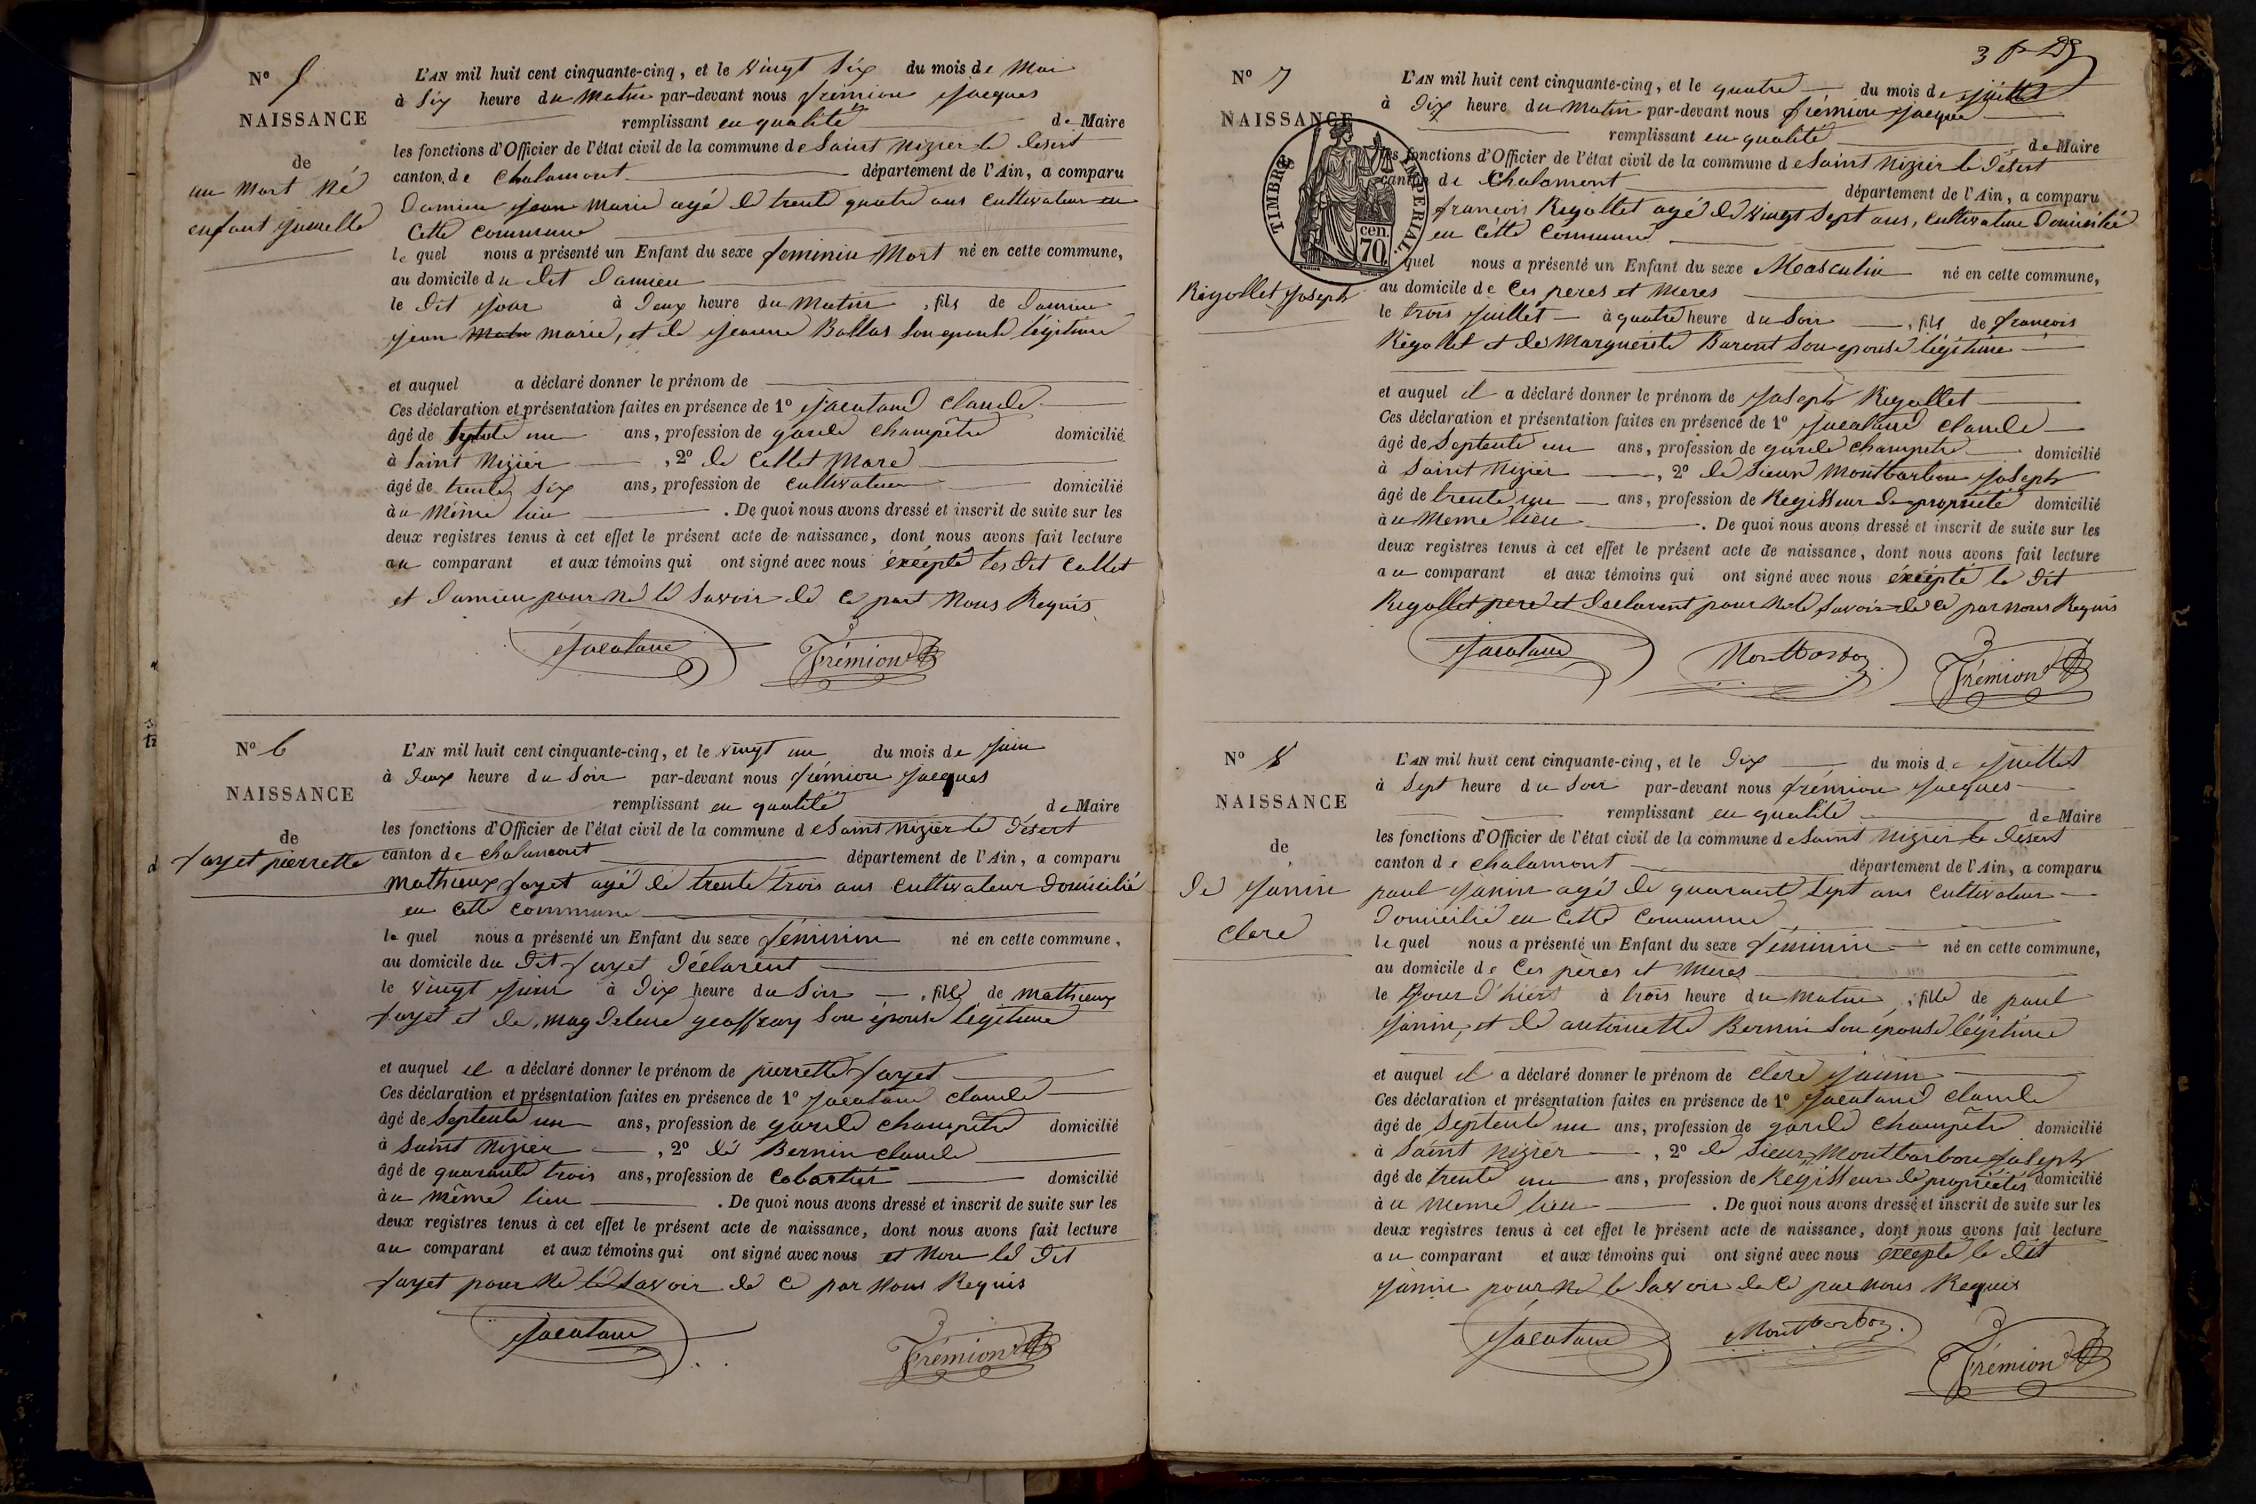 N° 5
NAISSANCE
de
un mort né
enfant jumelle
L'AN mil huit cent cinquante-cinq, et le vingt six du mois de Mai
à six heure du matin par-devant nous frémion jacques
remplissant en qualité de Maire
les fonctions d'Officier de l'état civil de la commune de Saint Nizier le Désert
canton de Chalamont département de l'Ain, a comparu
Damien jean marie agé de trente quatre ans cultivateur en
cette commune
lequel nous a présenté un Enfant du sexe feminin Mort né en cette commune,
au domicile du dit Damien
le dit jour à deux heure du matin, fils de Damien
jean marie, et de jeanne Ballas son epouse légitime
et auquel a déclaré donner le prénom de
Ces déclaration et présentation faites en présence de 1° claude
âgé de un ans, profession de garde champêtre domicilié
à Saint Nizier, 2° de Collet Marc
âgé de trente six ans, profession de cultivateur domicilié
à u même lieu. De quoi nous avons dressé et inscrit de suite sur les
deux registres tenus à cet effet le présent acte de naissance, dont nous avons fait lecture
au comparant et aux témoins qui ont signé avec nous éxcépté les dit Collet
et Damien pour ne le savoir de ce part nous Requis
Frémion
N° 6
NAISSANCE
de
fayet pierrette
L'AN mil huit cent cinquante-cinq, et le vingt un du mois de juin
à deux heure du soir par-devant nous frémion jacques
remplissant en qualité de Maire
les fonctions d'Officier de l'état civil de la commune de Saint Nizier le Désert
canton de chalamont département de l'Ain, a comparu
Mathieux fayet agé de trente trois ans cultivateur domicilié
en cette commune
lequel nous a présenté un Enfant du sexe féminin né en cette commune,
au domicile du dit fayet déclarent
le vingt juin à dix heure du soir, fille de mathieux
fayet et de magdeleine geoffray son épouse légitime
et auquel il a déclaré donner le prénom de pierrette fayet
Ces déclaration et présentation faites en présence de 1° claude
âgé de septente un ans, profession de garde champêtre domicilié
à Saint Nizier, 2° de Bernin claude
âgé de quarante trois ans, profession de Cabartier domicilié
à u même lieu. De quoi nous avons dressé et inscrit de suite sur les
deux registres tenus à cet effet le présent acte de naissance, dont nous avons fait lecture
au comparant et aux témoins qui ont signé avec nous et non le dit
fayet pour ne le savoir de ce par nous Requis
Frémion
N° 7
NAISSANCE
TIMBRE IMPERIAL
cen.
70
Rigollet joseph
L'AN mil huit cent cinquante-cinq, et le quatre du mois de juillet
à dix heure du matin par-devant nous frémion jacques
remplissant en qualité de Maire
les fonctions d'Officier de l'état civil de la commune de Saint Nizier le Désert
canton de Chalamont département de l'Ain, a comparu
françois Rigollet agé de vingt sept ans, cultivateur domicilié
en cette commune
quel nous a présenté un Enfant du sexe Masculin né en cette commune,
au domicile de ces peres et meres
le trois juillet à quatre heure du soir, fils de françois
Rigollet et de Marguerite Baront son epouse légitime
et auquel il a déclaré donner le prénom de joseph Rigollet
Ces déclaration et présentation faites en présence de 1° claude
âgé de septente un ans, profession de garde champetre domicilié
à Saint Nizier, 2° de sieur Montbarbon joseph
âgé de trente un ans, profession de Régisseur de propriété domicilié
à u meme lieu. De quoi nous avons dressé et inscrit de suite sur les
deux registres tenus à cet effet le présent acte de naissance, dont nous avons fait lecture
au comparant et aux témoins qui ont signé avec nous éxcépté le dit
Rigollet pere et declarent pour ne le savoir de ce par nous Requis
Montbarbon
Frémion
N° 8
NAISSANCE
de
de janin
clere
L'AN mil huit cent cinquante-cinq, et le dix du mois de juillet
à sept heure du soir par-devant nous frémion jacques
remplissant en qualité de Maire
les fonctions d'Officier de l'état civil de la commune de Saint Nizier le Désert
canton de chalamont département de l'Ain, a comparu
paul janin agé de quarante sept ans cultivateur
domicilié en cette commune
lequel nous a présenté un Enfant du sexe féminin né en cette commune,
au domicile de ces pères et mères
le jour d'hiert à trois heure du matin, fille de paul
janin, et de antoinette Bernin son épouse légitime
et auquel il a déclaré donner le prénom de clere janin
Ces déclaration et présentation faites en présence de 1° claude
âgé de septente un ans, profession de garde champêtre domicilié
à Saint Nizier, 2° de sieur Montbarbon joseph
âgé de trente un ans, profession de Régisseur de propriétés domicilié
à u meme lieu. De quoi nous avons dressé et inscrit de suite sur les
deux registres tenus à cet effet le présent acte de naissance, dont nous avons fait lecture
au comparant et aux témoins qui ont signé avec nous éxcépté le dit
janin pour ne le savoir de ce par nous Requis
Montbarbon
Frémion